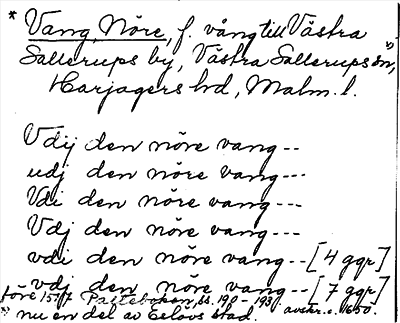 * Vang, Nöre, f. vång till Västra
Sallerups by, Västra Sallerups sn,*)
Harjagers hd, Malm. l.
Vdij den nöre vang---
udj den nöre vang---
Vdi den nöre vang---
Vdj den nöre vang---
vdi den nöre vang---[4 ggr]
vdj den nöre vang---[7 ggr]
före 1577 Palteboken, ss. 190-193, avskr. c. 1650.
*) nu en del av Eslövs stad.